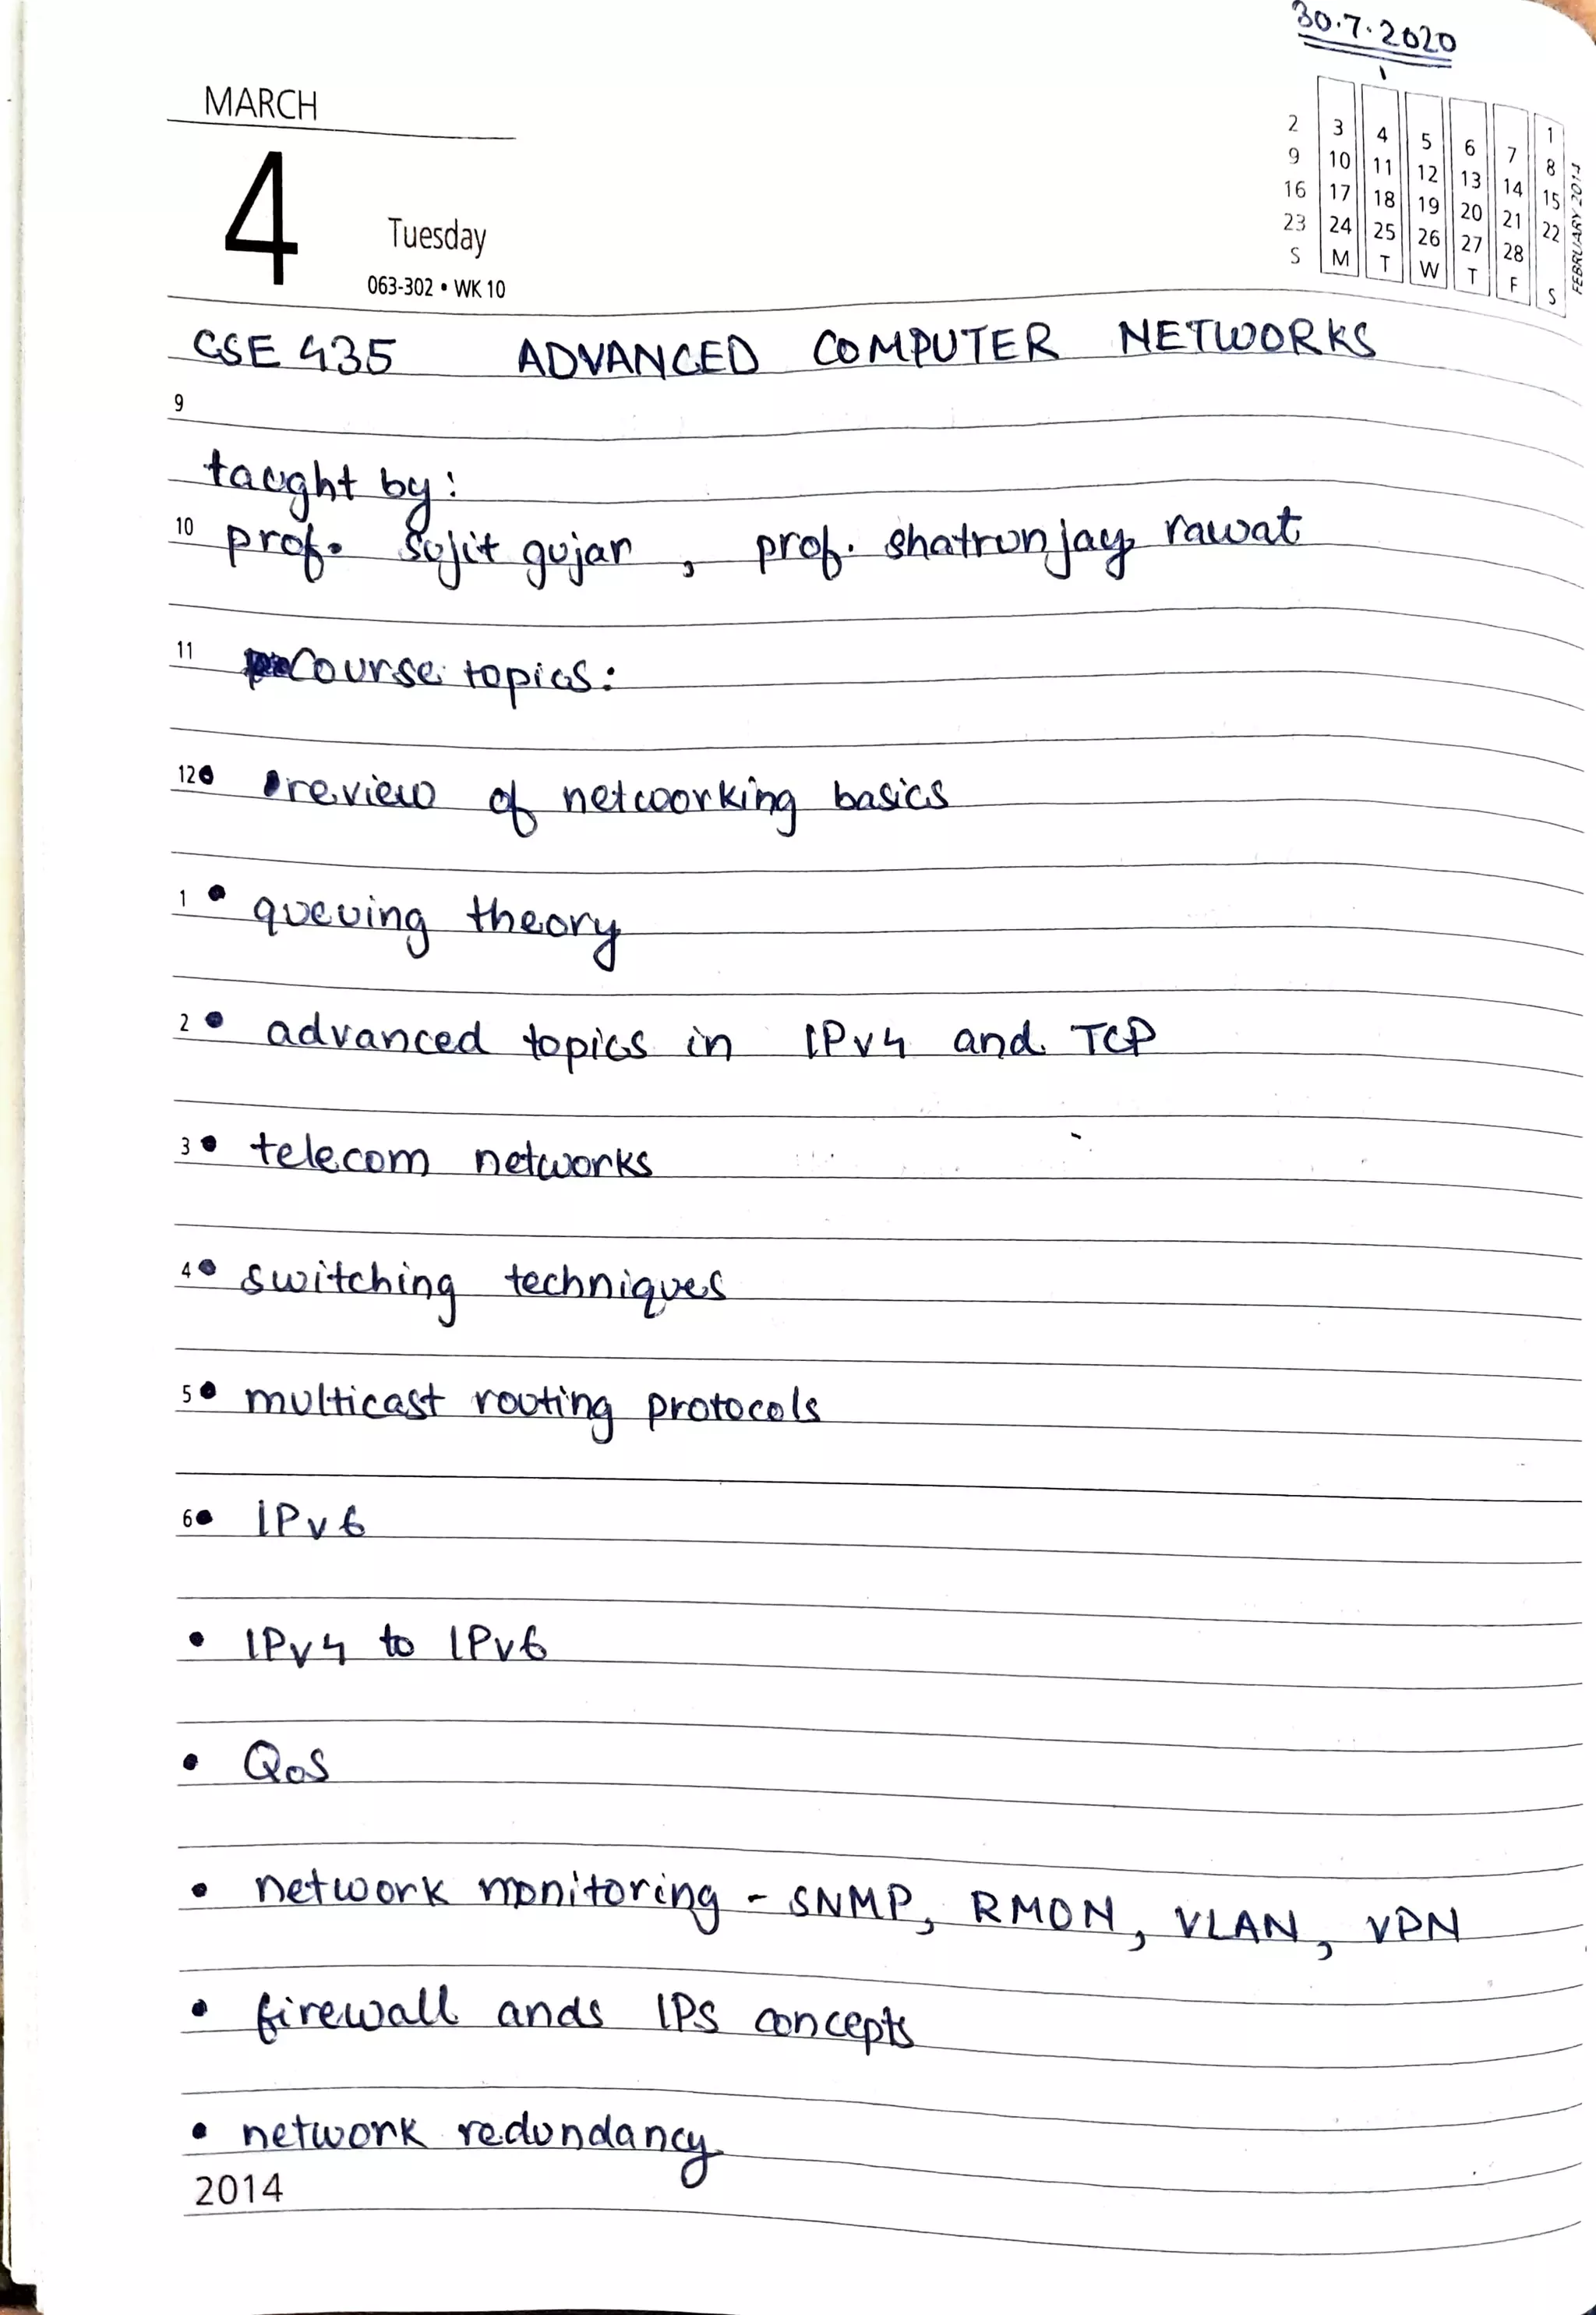 30.7.2020
MARCH
4
Tuesday
063-302 • WK 10
1
2 3 4 5 6 7 8
9 10 11 12 13 14 15
16 17 18 19 20 21 22
23 24 25 26 27 28
S M T W T F S
FEBRUARY 2014
CSE 435 ADVANCED COMPUTER NETWORKS
9
taught by:
10 prof. sujit gujar, prof. shatrunjay rawat
11 course topics:
12 • review of networking basics
1 • queuing theory
2 • advanced topics in IPv4 and TCP
3 • telecom networks
4 • switching techniques
5 • multicast routing protocols
6 • IPv6
• IPv4 to IPv6
• QoS
• network monitoring - SNMP, RMON, VLAN, VPN
• firewall ands IPS concepts
• network redundancy
2014